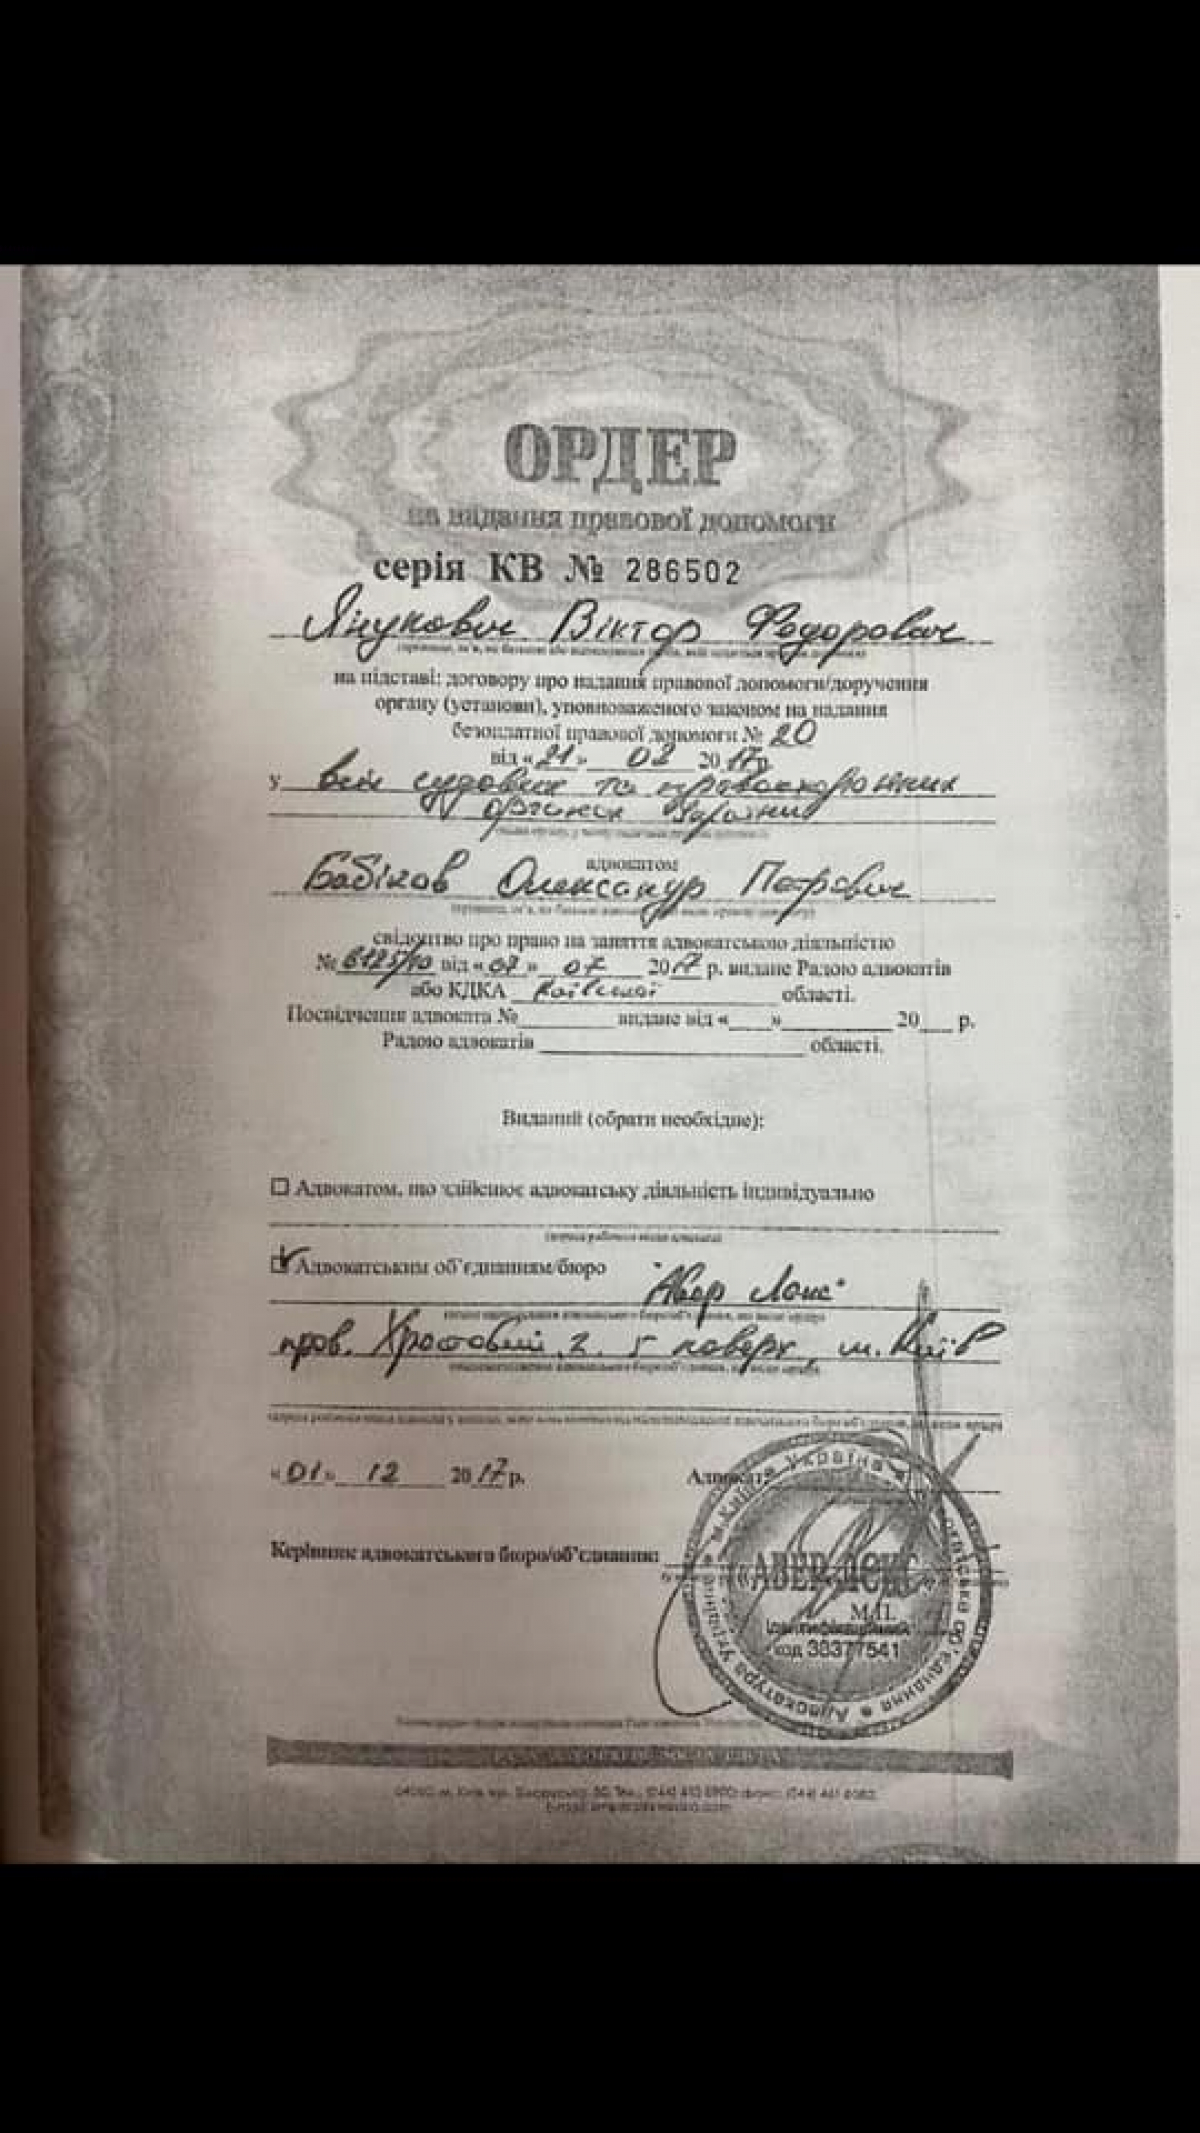 ОРДЕР
на надання правової допомоги
серія КВ № 286502
Янукович Віктор Федорович
на підставі: договору про надання правової допомоги/доручення
органу (установи), уповноваженого законом на надання
безоплатної правової допомоги № 20
від «21» 02 2017р.
у всіх судових та правоохоронних
органах України
адвокатом
Бабіков Олександр Петрович
свідоцтво про право на заняття адвокатською діяльністю
№ 6125/10 від «07» 07 2017 р. видане Радою адвокатів
або КДКА Київської області.
Посвідчення адвоката № видане від « » 20 р.
Радою адвокатів області.
Виданий (обрати необхідне):
Адвокатом, що здійснює адвокатську діяльність індивідуально
(адреса робочого місця адвоката)
Адвокатським об'єднанням/бюро
"Авер Лекс"
пров. Хрестовий, 2, 5 поверх, м. Київ
«01» 12 2017 р. Адвокат
Керівник адвокатського бюро/об'єднання:
«АВЕР ЛЕКС»
М.П.
Ідентифікаційний
код 38377541
Україна
м.Київ
Адвокатура України